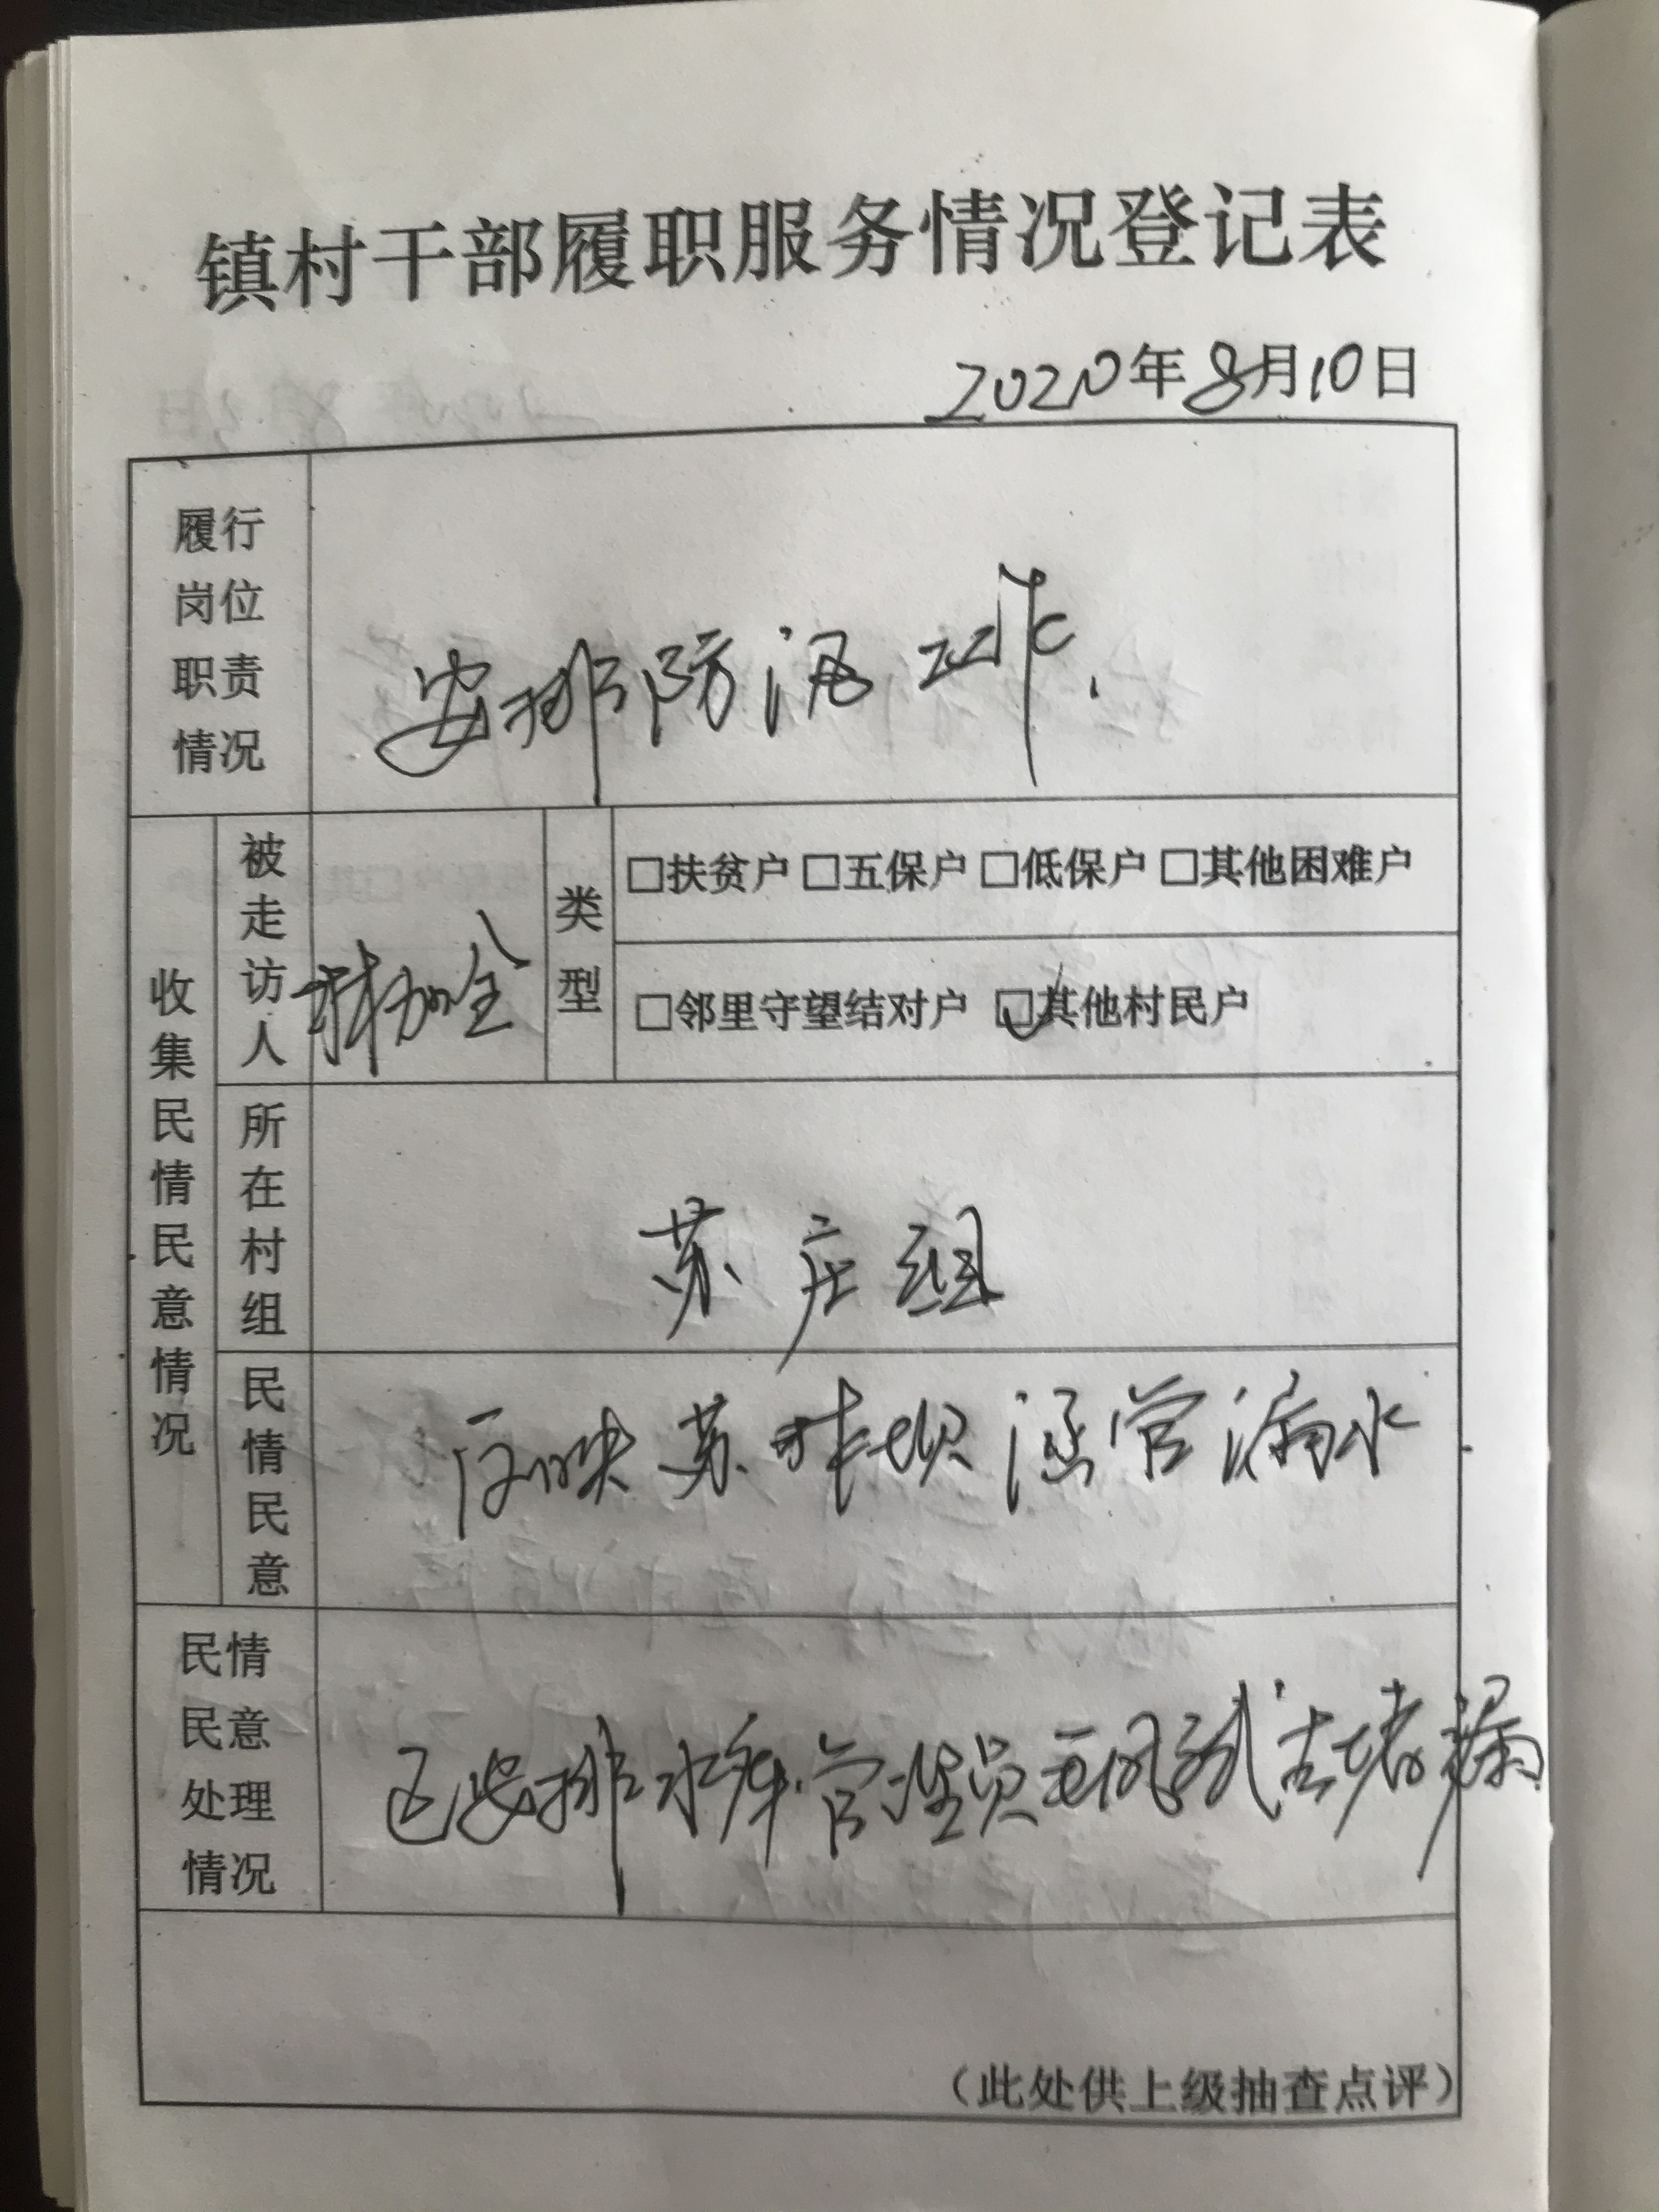 镇村干部履职服务情况登记表
2020年8月10日
履行
岗位
职责
情况
安排防汛工作.
收集民情民意情况
被走访人
加全
类型
□扶贫户 □五保户 □低保户 □其他困难户
□邻里守望结对户 ☑其他村民户
所在村组
苏庄组
民情民意
反映苏 坝涵管漏水
民情
民意
处理
情况
已安排水库管理员 去堵漏
(此处供上级抽查点评)